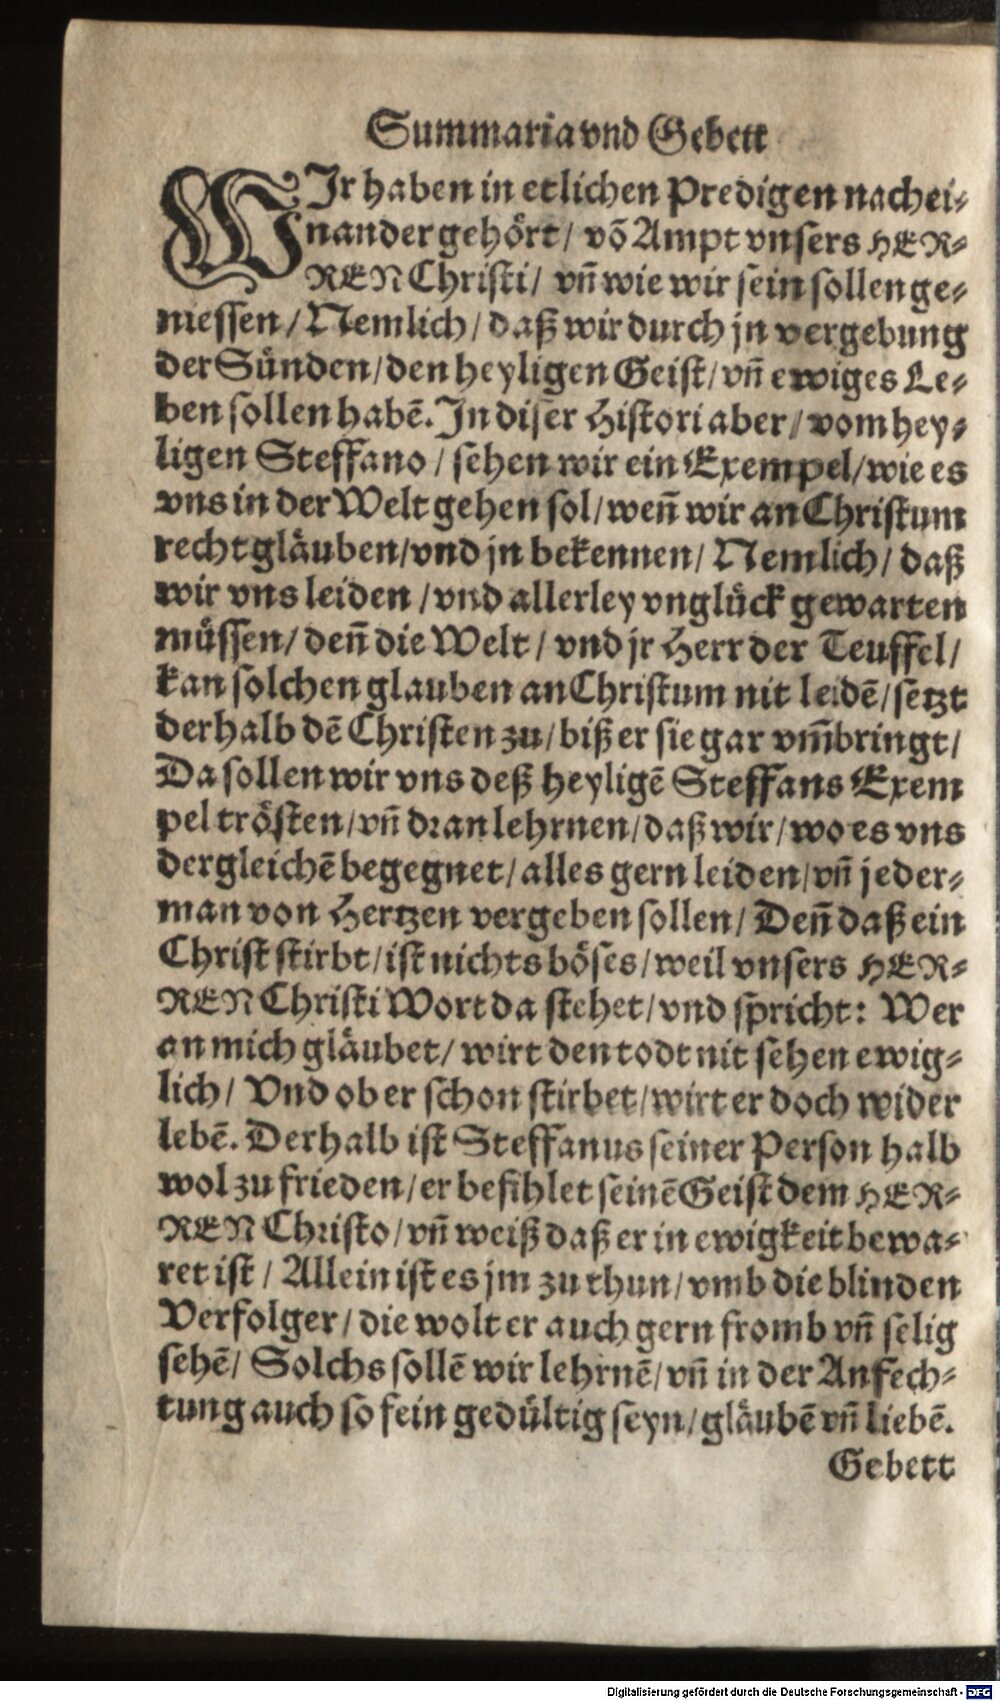 Summaria vnd Gebett
WIr haben in etlichen Predigen nachei-
nander gehört / võ Ampt vnsers HER-
REN Christi / vñ wie wir sein sollen ge-
niessen / Nemlich / daß wir durch jn vergebung
der Sünden / den heyligen Geist / vñ ewiges Le-
ben sollen habẽ. In diser Histori aber / vom hey-
ligen Steffano / sehen wir ein Exempel / wie es
vns in der Welt gehen sol / weñ wir an Christum
recht gläuben / vnd jn bekennen / Nemlich / daß
wir vns leiden / vnd allerley vnglück gewarten
müssen / deñ die Welt / vnd jr Herr der Teuffel /
kan solchen glauben an Christum nit leidẽ / setzt
derhalb dẽ Christen zu / biß er sie gar vm̃bringt /
Da sollen wir vns deß heyligẽ Steffans Exem
pel trösten / vñ dran lehrnen / daß wir / wo es vns
dergleichẽ begegnet / alles gern leiden / vñ jeder-
man von Hertzen vergeben sollen / Deñ daß ein
Christ stirbt / ist nichts böses / weil vnsers HER-
REN Christi Wort da stehet / vnd spricht: Wer
an mich gläubet / wirt den todt nit sehen ewig-
lich / Vnd ob er schon stirbet / wirt er doch wider
lebẽ. Derhalb ist Steffanus seiner Person halb
wol zu frieden / er befihlet seinẽ Geist dem HER-
REN Christo / vñ weiß daß er in ewigkeit bewa-
ret ist / Allein ist es jm zu thun / vmb die blinden
Verfolger / die wolt er auch gern fromb vñ selig
sehẽ / Solchs sollẽ wir lehrnẽ / vñ in der Anfech-
tung auch so fein gedültig seyn / gläubẽ vñ liebẽ.
Gebett
Digitalisierung gefördert durch die Deutsche Forschungsgemeinschaft - DFG